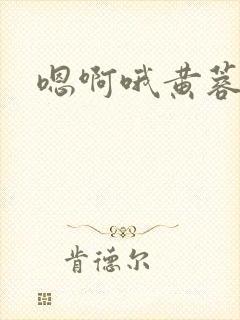 嗯啊哦黄蓉
肯德尔